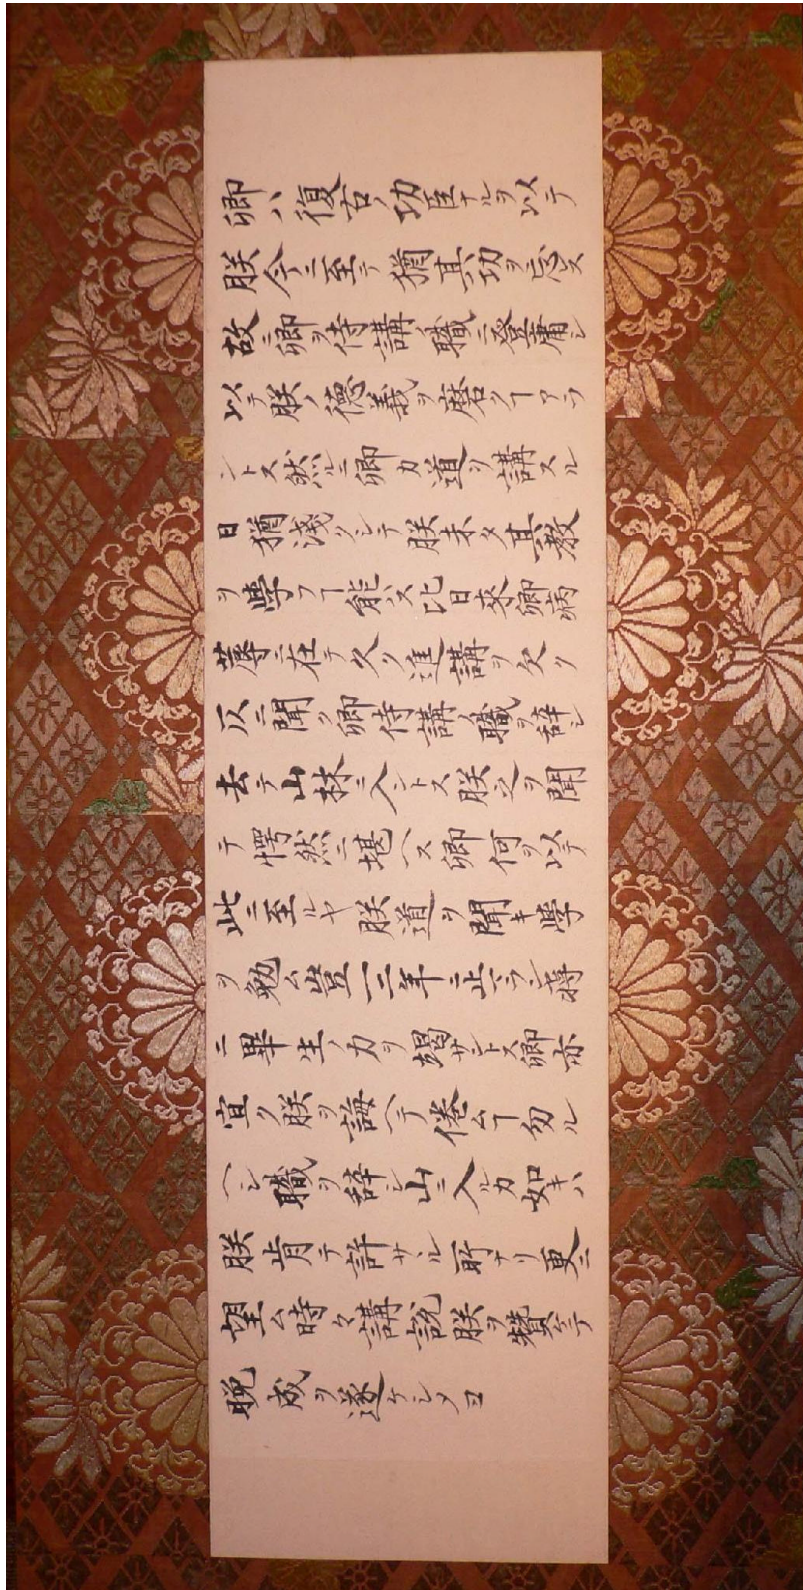 卿ハ復古ノ功臣ナルヲ以テ
朕今ニ至テ猶其功ヲ忘ス
故ニ卿ヲ侍講ノ職ニ登庸シ
以テ朕ノ徳義ヲ磨クヿアラ
ントス然ルニ卿カ道ヲ講スル
日猶浅クシテ朕未タ其教
ヲ學フヿ能ハス比日來卿病
蓐ニ在テ久ク進講ヲ欠ク
仄ニ聞ク卿侍講ノ職ヲ辞シ
去テ山林ニ入ントス朕之ヲ聞
テ愕然ニ堪ヘス卿何ヲ以テ
此ニ至ルヤ朕道ヲ聞キ学
ヲ勉ム豈一二年ニ止マラン将
ニ畢生ノ力ヲ竭サントス卿亦
宜ク朕ヲ誨ヘテ倦ムヿ勿ル
ヘシ職ヲ辞シ山ニ入ルカ如キハ
朕肯テ許サヽル所ナリ更ニ
望ム時々講説朕ヲ賛ケテ
晩成ヲ遂ケシメヨ